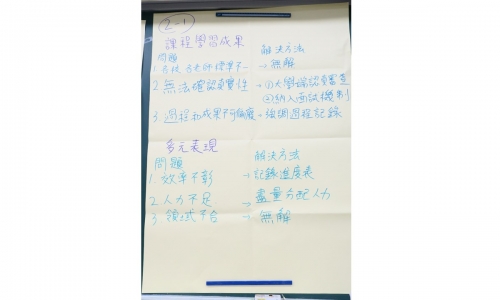 2-1
課程學習成果
問題 解決方法
1.各校、各老師標準不一 → 無解
2.無法確認真實性 → ①大學端認真審查
②納入面試機制
3.過程和成果不 → 強調過程記錄
多元表現
問題 解決方法
1.效率不彰 → 記錄進度表
2.人力不足 → 盡量分配人力
3.領域不合 → 無解